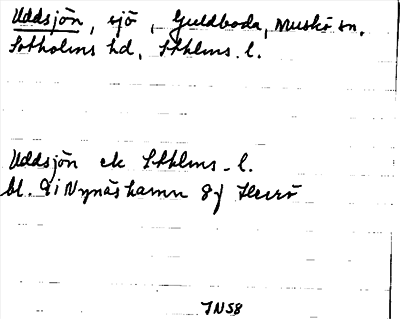 Uddsjön, sjö, Guldboda, Muskö sn.
Sotholms hd, Sthlms. l.
Uddsjön ek Sthlms. l.
bl. 9 i Nynäshamn 8 j Herrö
JN58